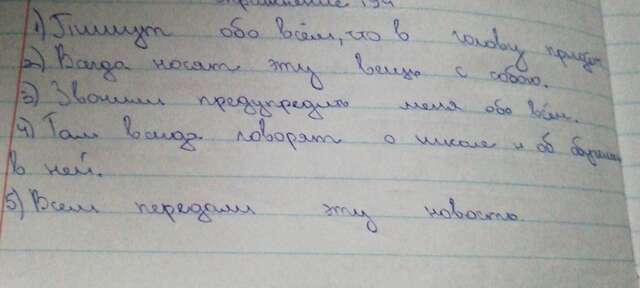 Упражнение 194
1) Пишут обо всём, что в голову придёт.
2) Всегда носят эту вещь с собою.
3) Звонили предупредить меня обо всём.
4) Там всегда говорят о школе и об
в ней.
5) Всем передали эту новость.